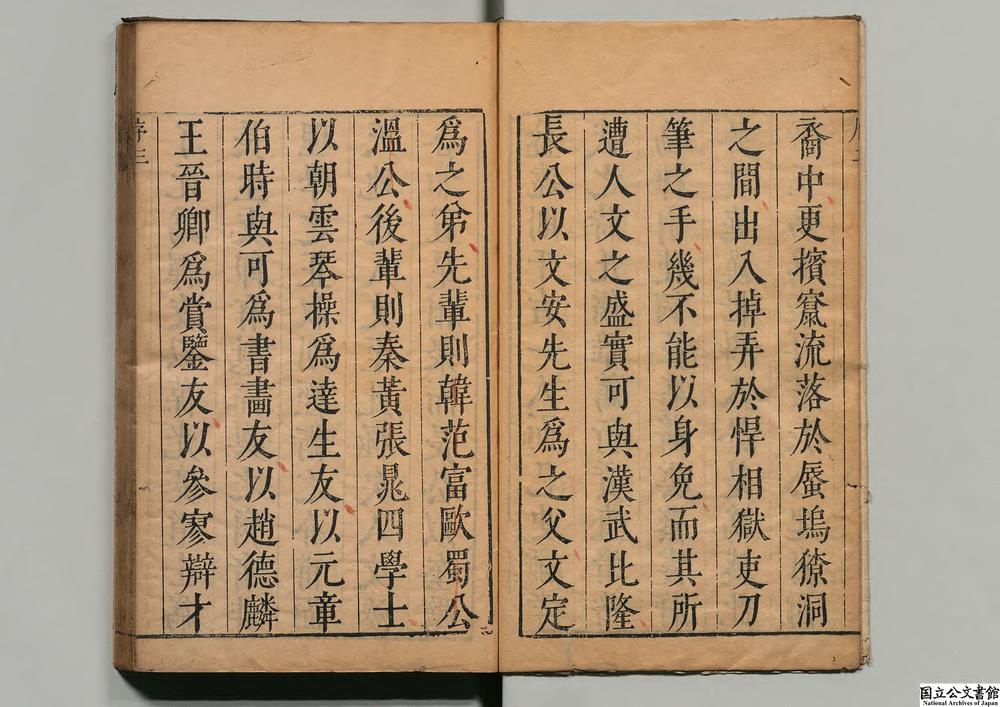 裔中更擯竄流落於蜑塢獠洞
之間出入掉弄於悍相獄吏刀
筆之手幾不能以身免而其所
遭人文之盛實可與漢武比隆
長公以文安先生爲之父文定
爲之弟先輩則韓范富歐蜀公
溫公後輩則秦黃張晁四學士
以朝雲琴操爲達生友以元章
伯時與可爲書畵友以趙德麟
王晉卿爲賞鑒友以參寥辯才
序三
国立公文書館
National Archives of Japan